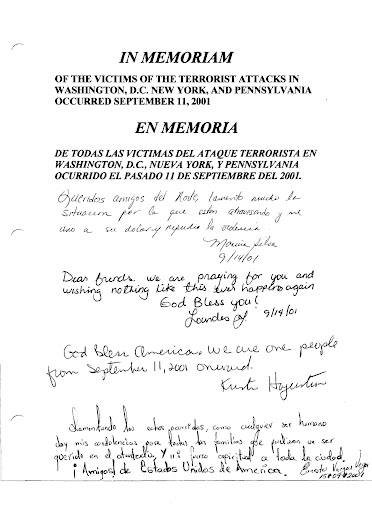 IN MEMORIAM
OF THE VICTIMS OF THE TERRORIST ATTACKS IN
WASHINGTON, D.C. NEW YORK, AND PENNSYLVANIA
OCCURRED SEPTEMBER 11, 2001
EN MEMORIA
DE TODAS LAS VICTIMAS DEL ATAQUE TERRORISTA EN
WASHINGTON, D.C., NUEVA YORK, Y PENNSYLVANIA
OCURRIDO EL PASADO 11 DE SEPTIEMBRE DEL 2001.
Queridos amigos del Norte, lamento mucho la
situacion por la que estan atravesando y me
uno a su dolor y repudio la violencia
9/14/01
Dear friends. we are praying for you and
wishing nothing like this ever happens again
God Bless you!
Lourdes 9/14/01
God Bless America. We are one people
from September 11, 2001 onward.
Lamentando los actos ocurridos, como cualquier ser humano
doy mis condolencias para todas las familias que perdieron un ser
querido en el atentado, y mi espiritual a toda la ciudad.
¡Amigos! de Estados Unidos de America. Ernesto Vargas
15*09*2001